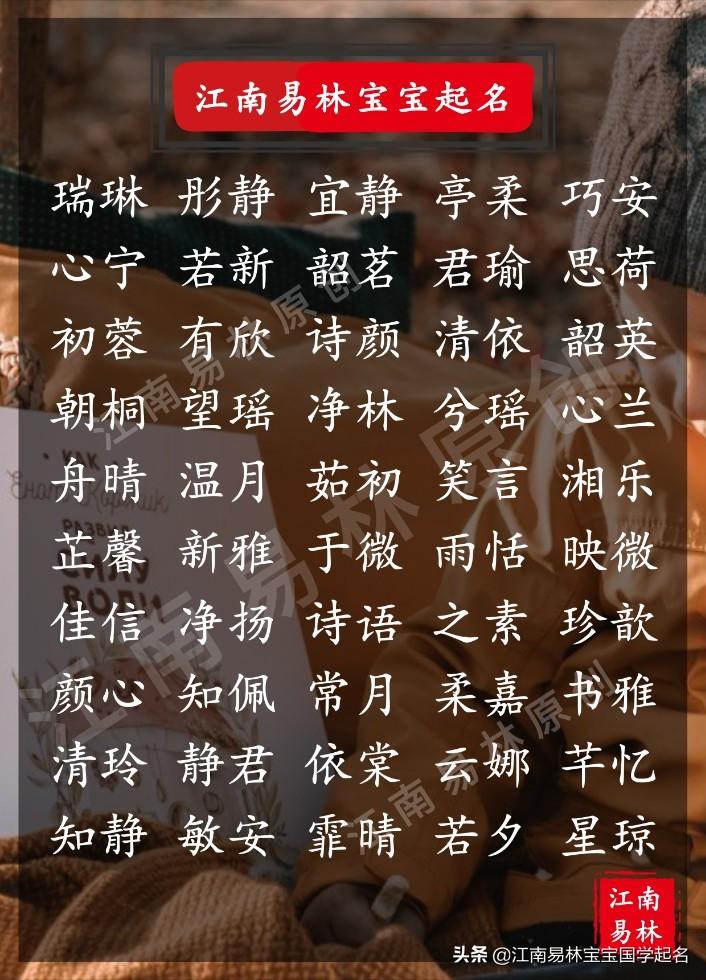 江南易林宝宝起名
瑞琳 彤静 宜静 亭柔 巧安
心宁 若新 韶茗 君瑜 思荷
初蓉 有欣 诗颜 清依 韶英
朝桐 望瑶 净林 兮瑶 心兰
舟晴 温月 茹初 笑言 湘乐
芷馨 新雅 于微 雨恬 映微
佳信 净扬 诗语 之素 珍歆
颜心 知佩 常月 柔嘉 书雅
清玲 静君 依棠 云娜 芊忆
知静 敏安 霏晴 若夕 星琼
江南易林原创
江南易林原创
江南易林原创
РАЗВИЛ
СИЛУ
ВОЛИ
江南
易林
头条 @江南易林宝宝国学起名